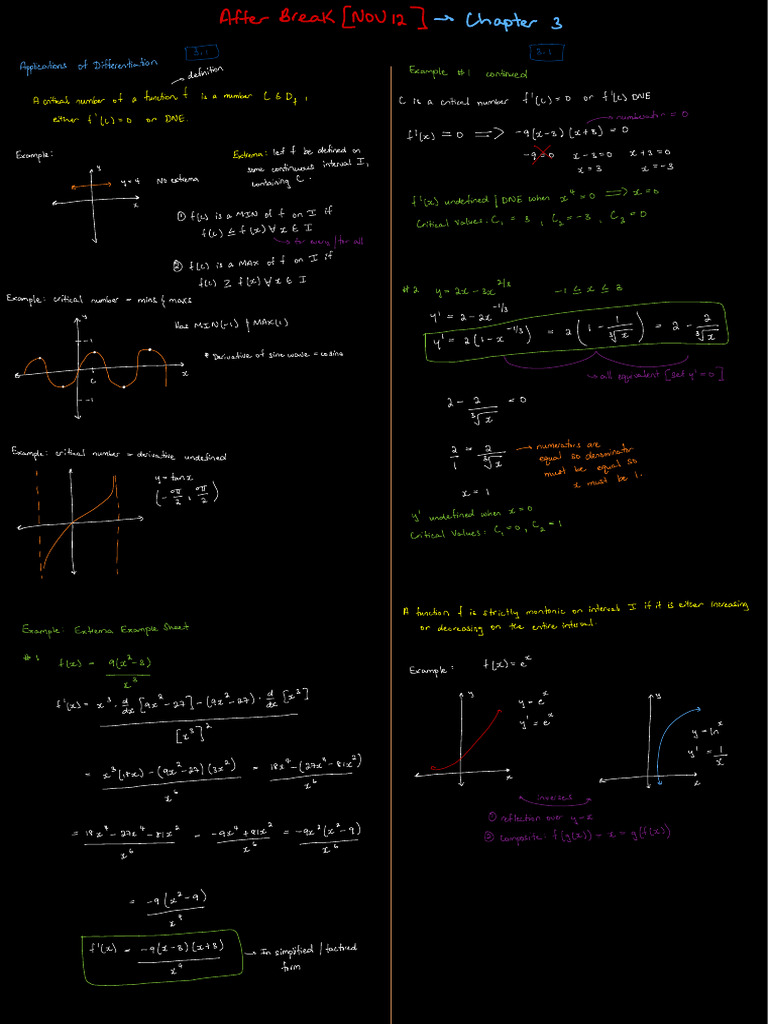 After Break [NOV 12] → Chapter 3
3.1
Applications of Differentiation
→ definition
A critical number of a function f is a number C ∈ D_f,
either f'(c) = 0 or DNE.
Example:
y
y = 4
x
No extrema
Extrema: let f be defined on
some continuous interval I,
containing C.
① f(c) is a MIN of f on I if
f(c) ≤ f(x) ∀ x ∈ I
→ for every / for all
② f(c) is a MAX of f on I if
f(c) ≥ f(x) ∀ x ∈ I
Example: critical number = mins & maxs
y
1
c
x
-1
Has MIN(-1) & MAX(1)
* Derivative of sine wave = cosine
Example: critical number = derivative undefined
y = tan x
(-π/2, π/2)
Example: Extrema Example Sheet
#1
f(x) = 9(x²-3) / x³
f'(x) = x³ · d/dx [9x²-27] - (9x²-27) · d/dx [x³] / [x³]²
= x³(18x) - (9x²-27)(3x²) / x⁶ = 18x⁴ - (27x⁴-81x²) / x⁶
= 18x⁴ - 27x⁴ - 81x² / x⁶ = -9x⁴ + 81x² / x⁶ = -9x²(x²-9) / x⁶
= -9(x²-9) / x⁴
f'(x) = -9(x-3)(x+3) / x⁴ → In simplified / factored
form
3.1
Example #1 continued
C is a critical number f'(c) = 0 or f'(c) DNE
→ numerator = 0
f'(x) = 0 ⟹ -9(x-3)(x+3) = 0
-9 = 0 x-3=0 x+3=0
x = 3 x = -3
f'(x) undefined | DNE when x⁴ = 0 ⟹ x = 0
Critical Values: C₁ = 3, C₂ = -3, C₃ = 0
#2 y = 2x - 3x^(2/3) -1 ≤ x ≤ 3
y' = 2 - 2x^(-1/3)
y' = 2(1 - x^(-1/3)) = 2(1 - 1/∛x) = 2 - 2/∛x
→ all equivalent [set y' = 0]
2 - 2/∛x = 0
2/1 = 2/∛x → numerators are
equal so denominator
must be equal so
x must be 1.
x = 1
y' undefined when x = 0
Critical Values: C₁ = 0, C₂ = 1
A function f is strictly montonic on interval I if it is either increasing
or decreasing on the entire interval.
Example: f(x) = eˣ
y
y = eˣ
y' = eˣ
x
y
y = lnˣ
y' = 1/x
x
inverses
① reflection over y=x
② composite: f(g(x)) = x = g(f(x))